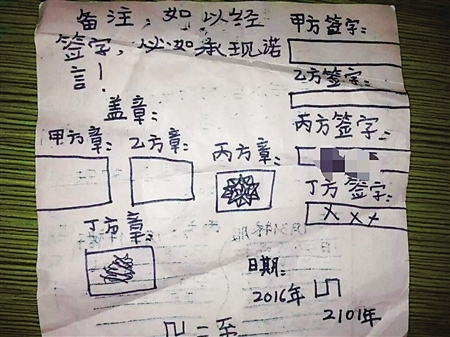 备注：如以经
签字，必如承现诺
言！
甲方签字：
乙方签字：
丙方签字：
丁方签字：
xxx
盖章：
甲方章：
乙方章：
丙方章：
丁方章：
日期：
2016年
2101年